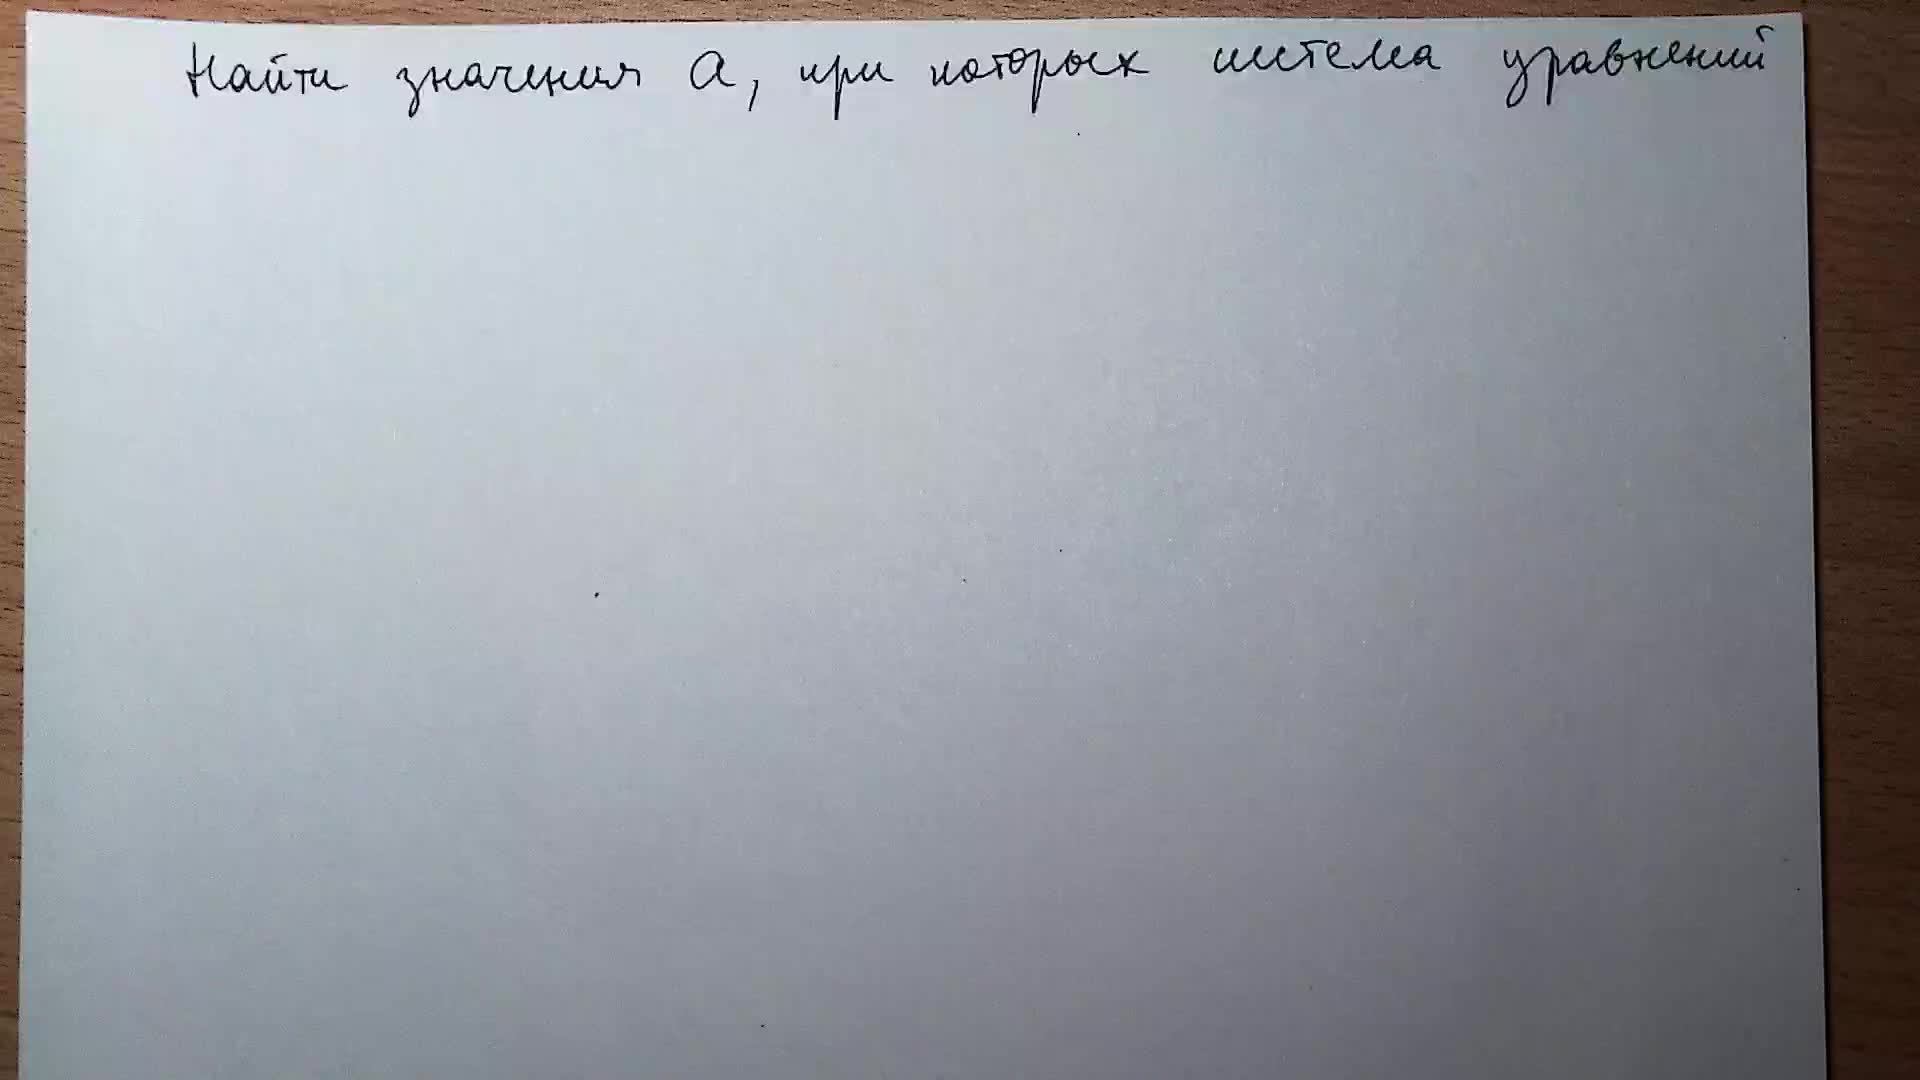 Найти значения a, при которых система уравнений